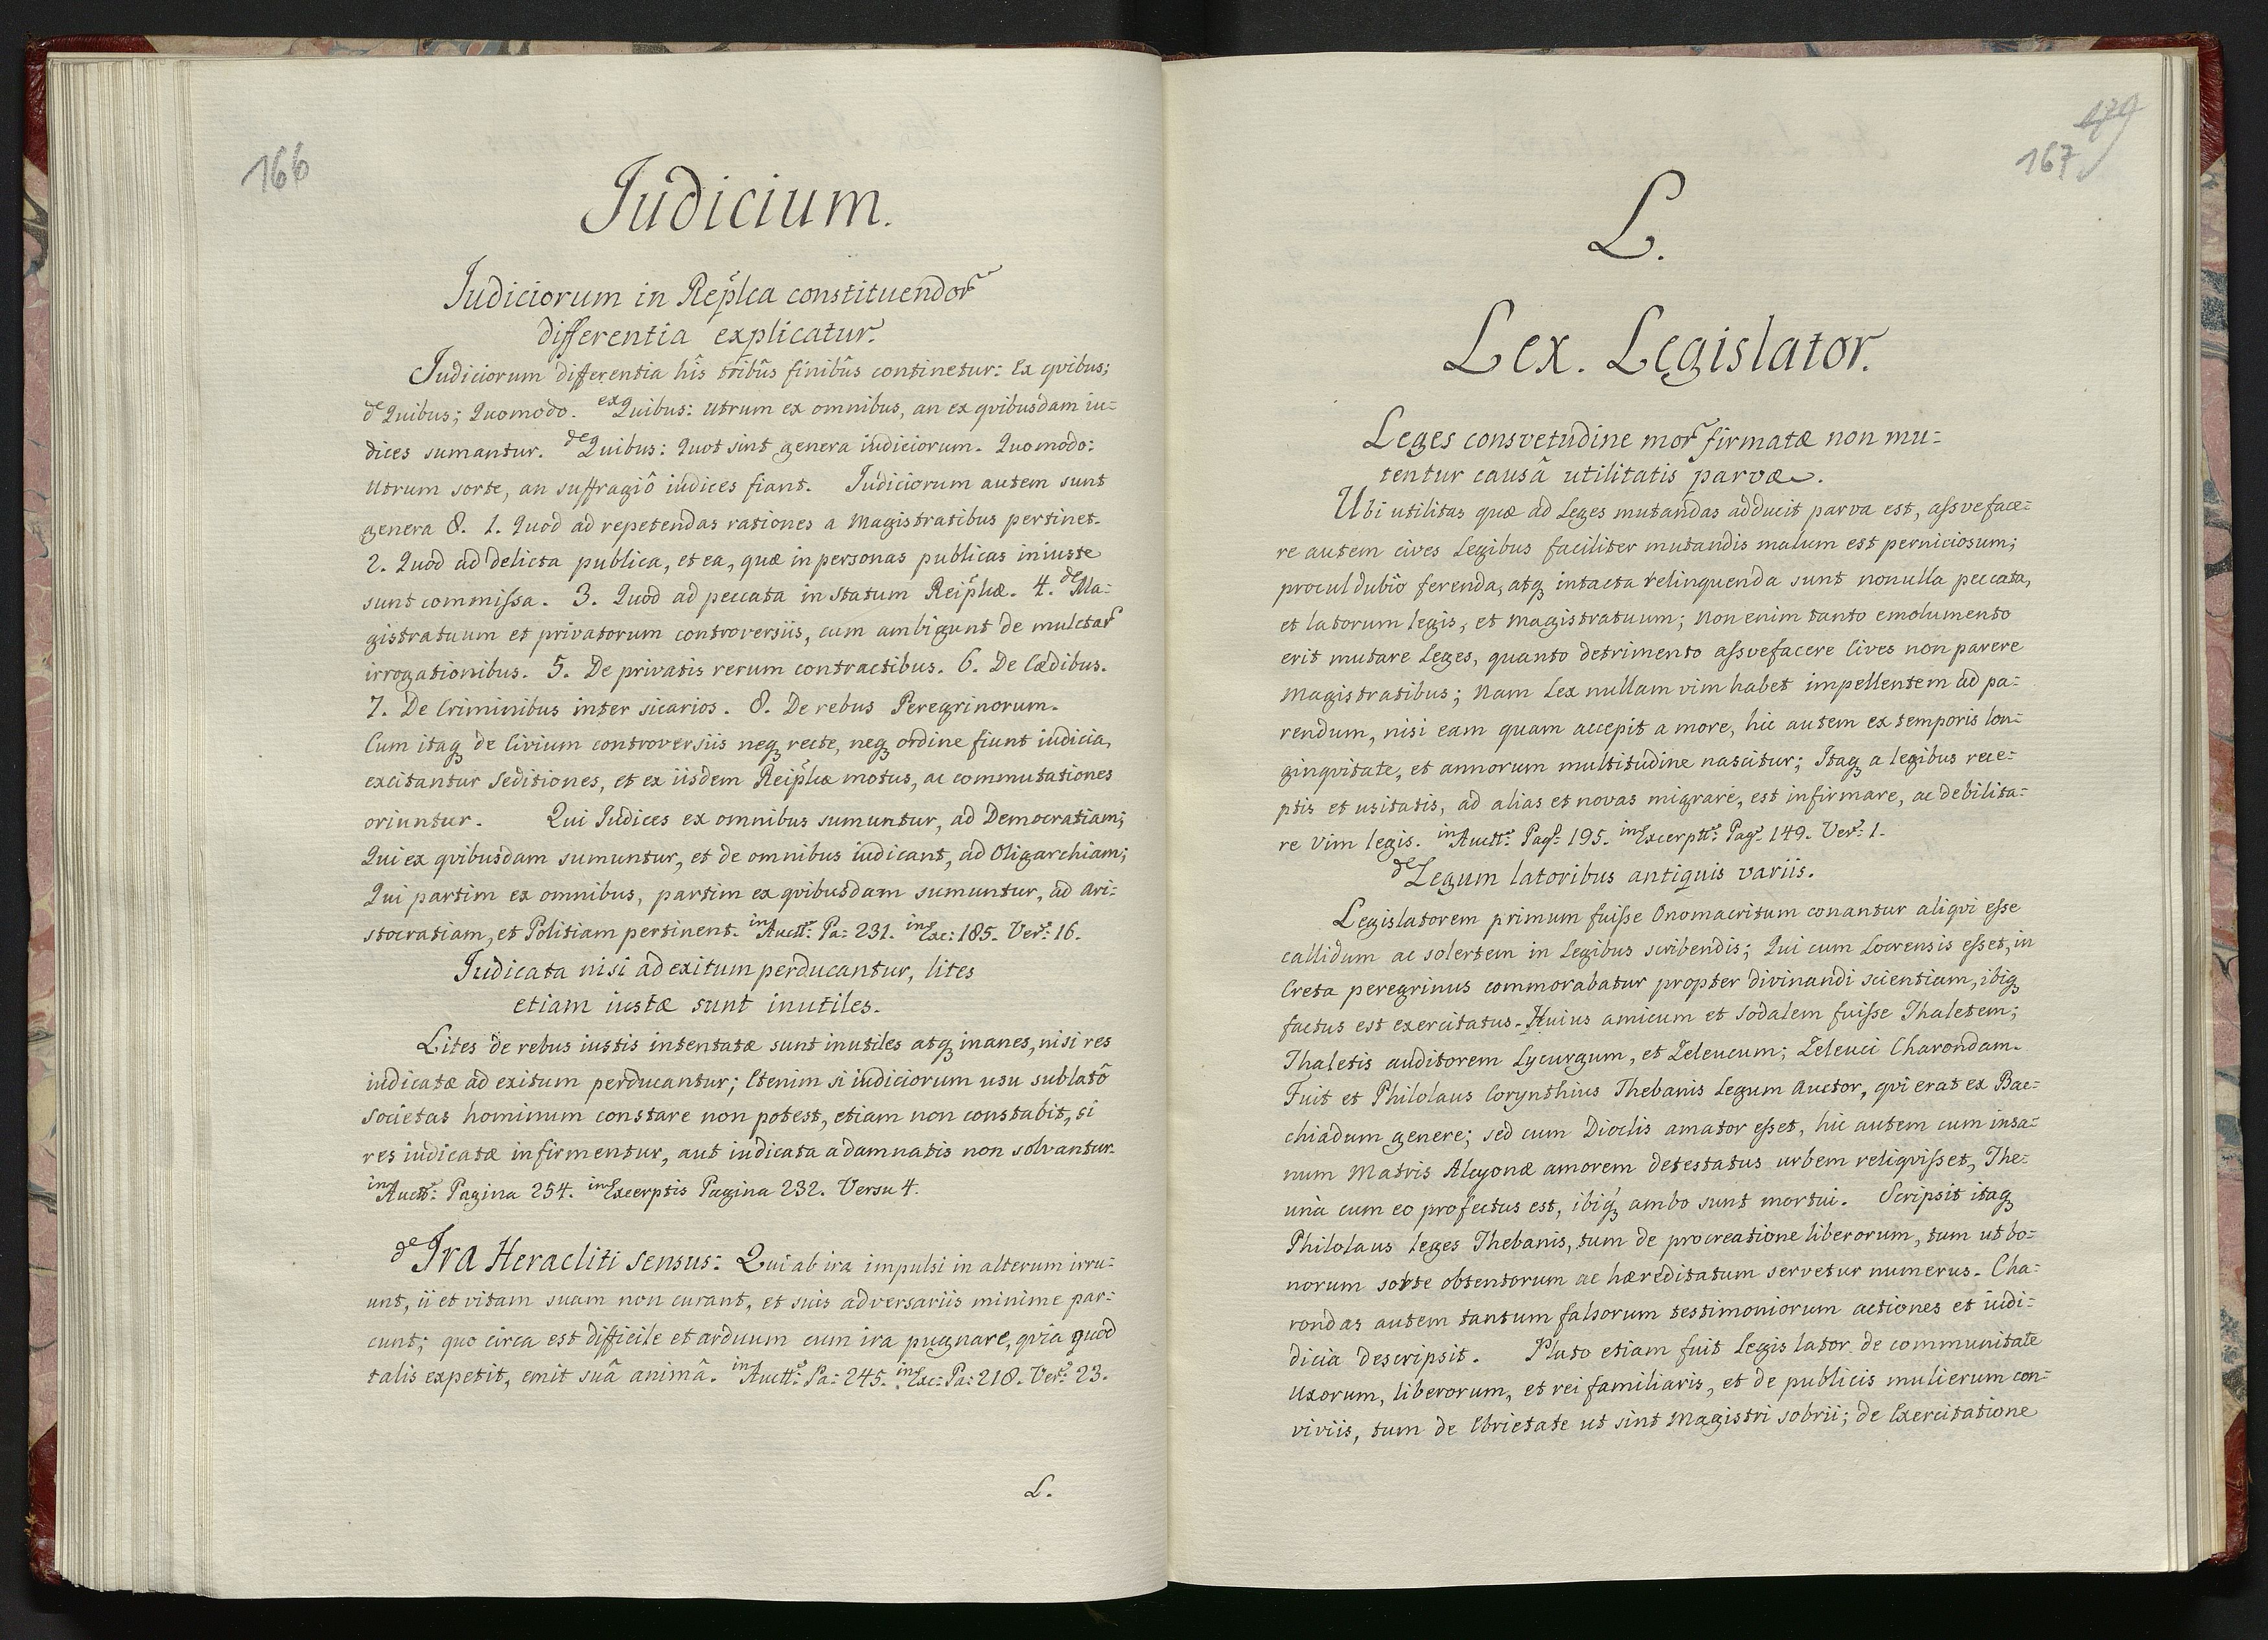 166
Judicium.
Judiciorum in Rep̃lca constituendor̃
differentia explicatur.
Judiciorum differentia hîs tribûs finibûs continetur: Ex qvibus;
de Quibus; Quomodo. ex Quibus: Utrum ex omnibus, an ex qvibusdam iu=
dices sumantur. de Quibus: Quot sint genera iudiciorum. Quomodo:
Utrum sorte, an suffragiô iudices fiant. Judiciorum autem sunt
genera 8. 1. Quod ad repetendas rationes a Magistratibus pertinet.
2. Quod ad delicta publica, et ea, quæ in personas publicas iniuste
sunt commiſsa. 3. Quod ad peccata in statum Reip̃licæ. 4. de Ma=
gistratuum et privatorum controversiis, cum ambigunt de mulctar̃
irrogationibus. 5. De privatis rerum contractibus. 6. De Cædibus.
7. De Criminibus inter sicarios. 8. De rebus Peregrinorum.
Cum itaq de Civium controversiis neq recte, neq ordine fiunt iudicia,
excitantur Seditiones, et ex iisdem Reip̃lcæ motus, ac commutationes
oriuntur. Qui Judices ex omnibus sumuntur, ad Democratiam;
Qui ex qvibusdam sumuntur, et de omnibus iudicant, ad Oligarchiam;
Qui partim ex omnibus, partim ex qvibusdam sumuntur, ad Ari=
stocratiam, et Politiam pertinent. in Auctt: Pa: 231. in Exc: 185. Ver: 16.
Judicata nisi ad exitum perducantur, lites
etiam iustæ sunt inutiles.
Lites de rebus iustis intentatæ sunt inutiles atq inanes, nisi res
iudicatæ ad exitum perducantur; Etenim si iudiciorum usu sublatô
societas hominum constare non potest, etiam non constabit, si
res iudicatæ infirmentur, aut iudicata a damnatis non solvantur.
in Auctt: Pagina 254. in Excerptis Pagina 232. Versu 4.
de Ira Heracliti sensus: Qui ab ira impulsi in alterum irru=
unt, ii et vitam suam non curant, et suis adversariis minime par=
cunt; quo circa est difficile et arduum cum ira pugnare, qvia quod
talis expetit, emit suâ animâ. in Auctt: Pa: 245. in Exc: Pa: 218. Ver: 23.
L.
179
167
L.
Lex. Legislator.
Leges consvetudine mor̃ firmatæ non mu=
tentur causâ utilitatis parvæ.
Ubi utilitas quæ ad Leges mutandas adducit parva est, aſsveface=
re autem cives Legibus faciliter mutandis malum est perniciosum;
procul dubiô ferenda, atq intacta relinquenda sunt nonulla peccata,
et latorum legis, et Magistratuum; Non enim tanto emolumento
erit mutare Leges, quanto detrimento aſsvefacere Cives non parere
Magistratibus; Nam Lex nullam vim habet impellentem ad pa=
rendum, nisi eam quam accepit a more, hic autem ex temporis lon=
ginqvitate, et annorum multitudine nascitur; Itaq a legibus rece=
ptis et usitatis, ad alias et novas migrare, est infirmare, ac debilita=
re Vim legis. in Auctt: Pag: 195. in Excerptt: Pag: 149. Ver: 1.
de Legum latoribus antiquis variis.
Legislatorem primum fuiſse Onomacritum conantur aliqvi eſse
callidum ac solertem in Legibus scribendis; Qui cum Locrensis eſset, in
Creta peregrinus commorabatur propter divinandi scientiam, ibiq
factus est exercitatus. Huius amicum et Sodalem fuiſse Thaletem;
Thaletis auditorem Lycurgum, et Zeleucum; Zeleuci Charondam.
Fuit et Philolaus Corynthius Thebanis Legum Auctor, qvi erat ex Bac=
chiadum genere; sed cum Dioclis amator eſset, hic autem cum insa=
num Matris Alcyonæ amorem detestatus urbem reliqviſset, The=
unà cum eo profectus est, ibiq ambo sunt mortui. Scripsit itaq
Philolaus leges Thebanis, tum de procreatione liberorum, tum ut bo=
norum sorte obtentorum ac hæreditatum servetur numerus. Cha=
rondas autem tantum falsorum testimoniorum actiones et iudi=
dicia descripsit. Plato etiam fuit Legislator de communitate
Uxorum, liberorum, et rei familiaris, et de publicis mulierum con=
viviis, tum de Ebrietate ut sint Magistri sobrii; de Exercitatione